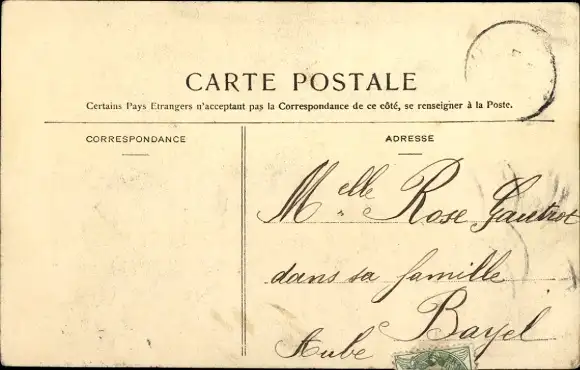 CARTE POSTALE
Certains Pays Etrangers n'acceptant pas la Correspondance de ce côté, se renseigner à la Poste.
CORRESPONDANCE
ADRESSE
Melle Rose Gautrot
dans sa famille
Bayel
Aube